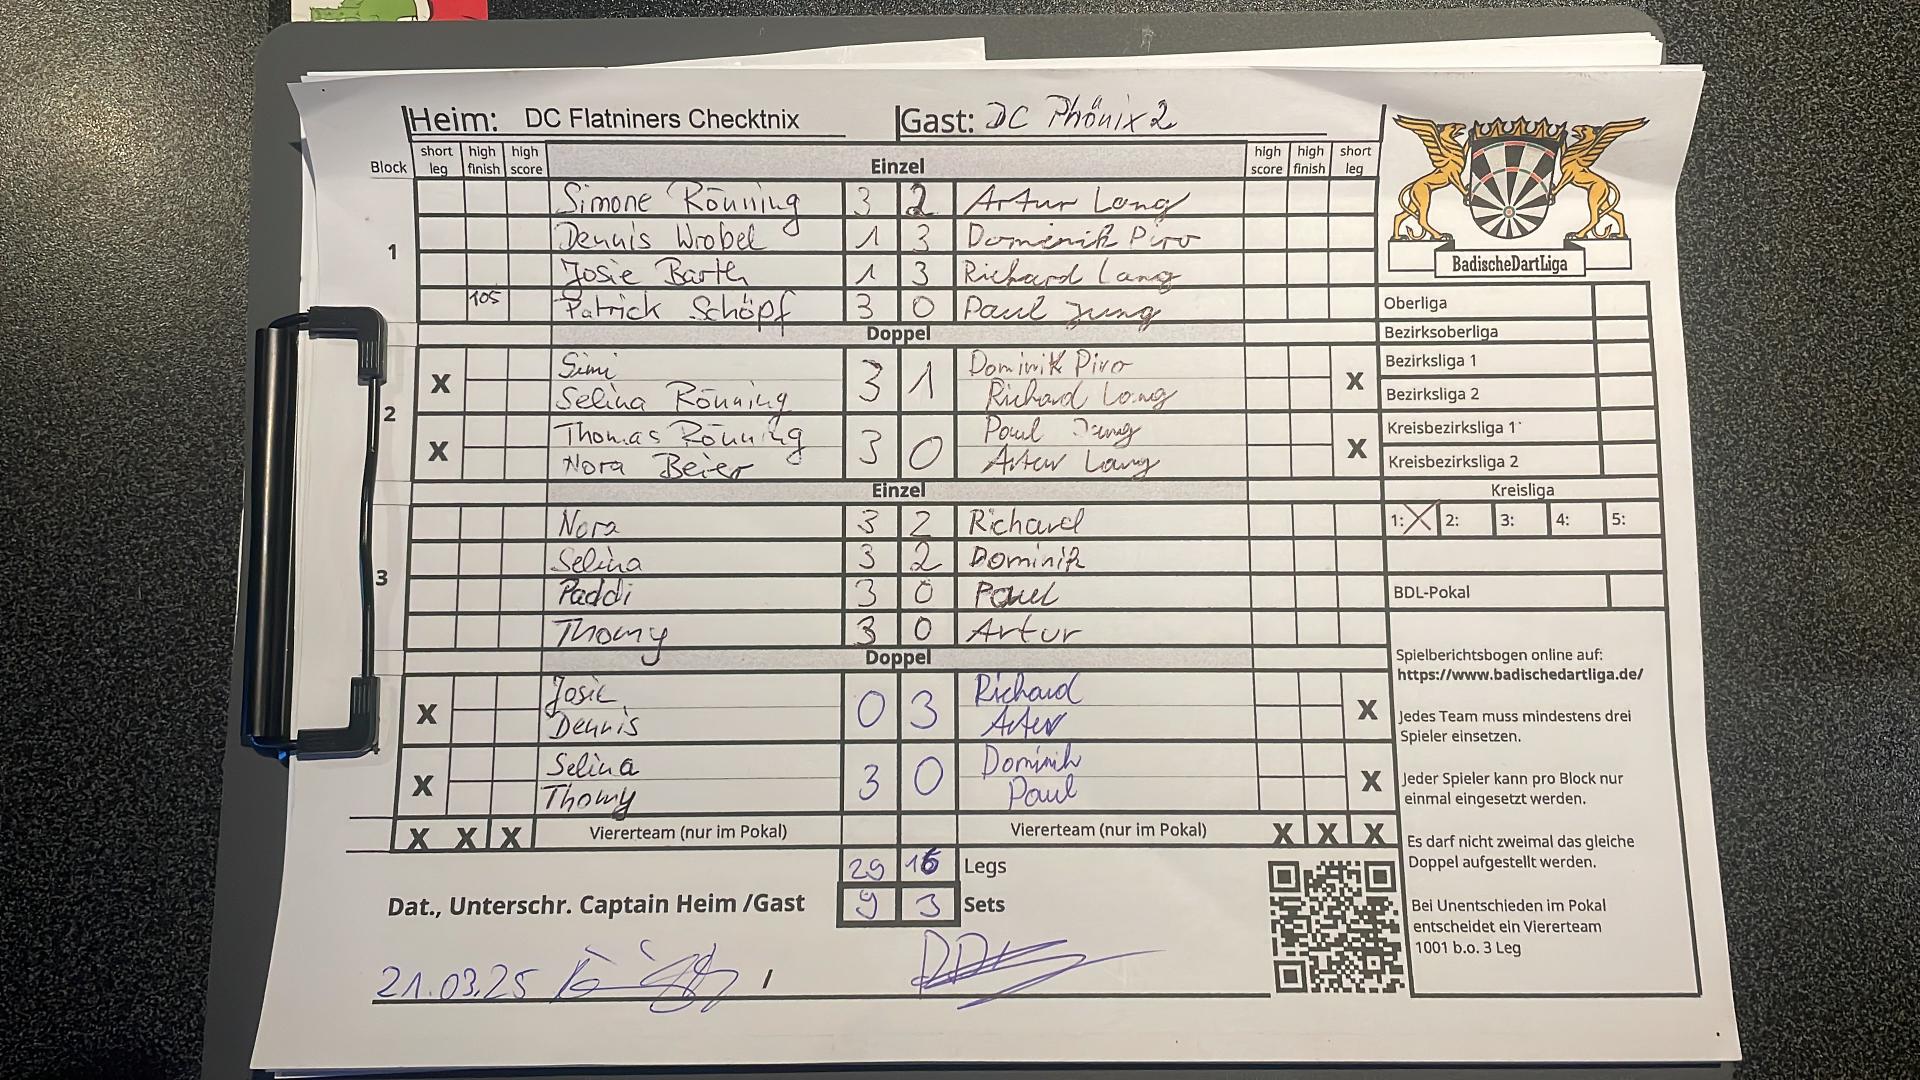 Heim: DC Flatniners Checktnix Gast: DC Phönix 2
Block short leg high finish high score Einzel high score high finish short leg
1
Simone Rönning 3 2 Artur Lang
Dennis Wrobel 1 3 Dominik Piro
Josie Barth 1 3 Richard Lang
105 Patrick Schöpf 3 0 Paul Jung
Doppel
2
X Simi 3 1 Dominik Piro X
Selina Rönning Richard Lang
X Thomas Rönning 3 0 Paul Jung X
Nora Beier Artur Lang
Einzel
3
Nora 3 2 Richard
Selina 3 2 Dominik
Paddi 3 0 Paul
Thomy 3 0 Artur
Doppel
X Josie 0 3 Richard X
Dennis Artur
X Selina 3 0 Dominik X
Thomy Paul
X X X Viererteam (nur im Pokal) Viererteam (nur im Pokal) X X X
29 16 Legs
Dat., Unterschr. Captain Heim /Gast 9 3 Sets
21.03.25 /
BadischeDartLiga
Oberliga
Bezirksoberliga
Bezirksliga 1
Bezirksliga 2
Kreisbezirksliga 1
Kreisbezirksliga 2
Kreisliga
1: X 2: 3: 4: 5:
BDL-Pokal
Spielberichtsbogen online auf:
https://www.badischedartliga.de/
Jedes Team muss mindestens drei
Spieler einsetzen.
Jeder Spieler kann pro Block nur
einmal eingesetzt werden.
Es darf nicht zweimal das gleiche
Doppel aufgestellt werden.
Bei Unentschieden im Pokal
entscheidet ein Viererteam
1001 b.o. 3 Leg